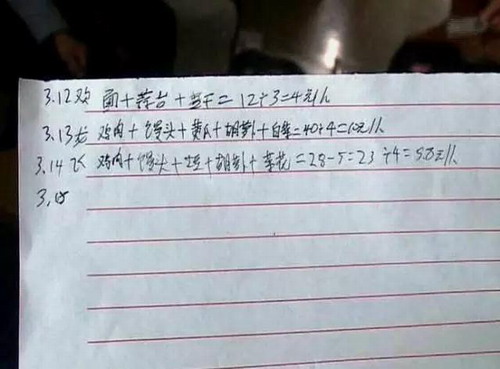 3.12 鸡 面+蒜台+豆干=12÷3=4元/人
3.13 龙 鸡肉+馒头+黄瓜+胡萝卜+白菜=40÷4=10元/人
3.14 飞 鸡肉+馒头+土豆+胡萝卜+菜花=28-5=23÷4=5.8元/人
3.15